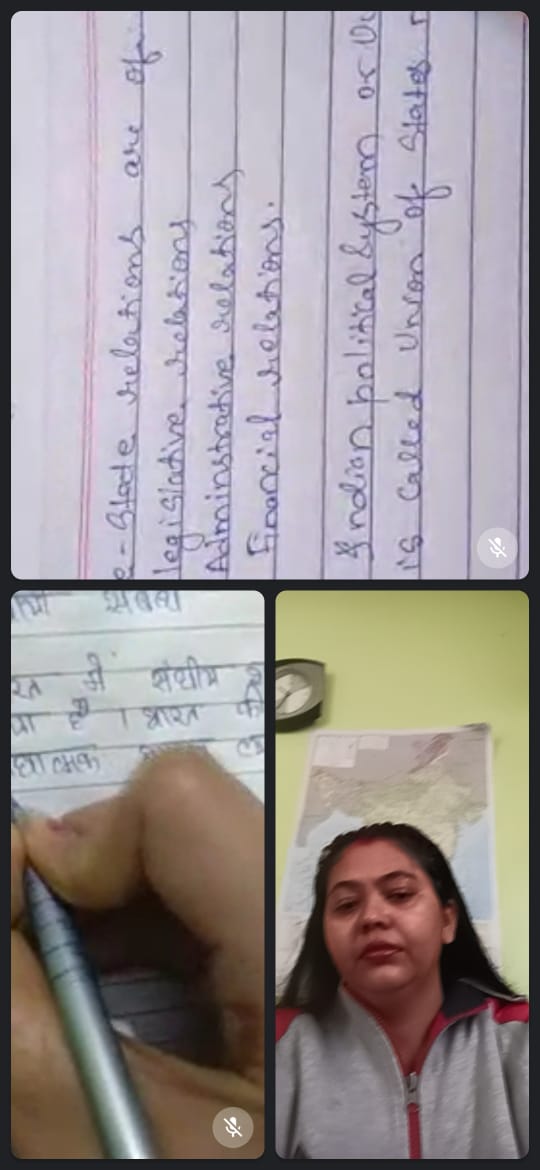 e-State relations are of
legislative relations
Adminstrative relations
Financial relations.
Indian political System or
is called Union of States
में संघीय
है । भारत